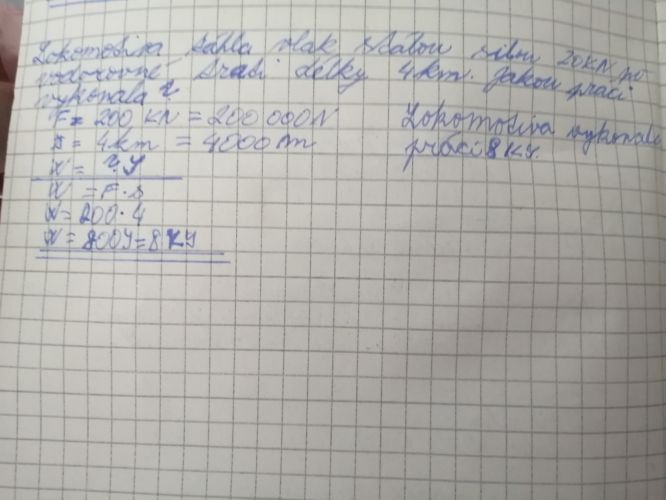 Lokomotiva táhla vlak stálou silou 20KN po
vodorovné trati délky 4km. Jakou práci
vykonala?
F = 200 KN = 200 000N
s = 4km = 4000m
W = ? J
W = F · s
W = 200 · 4
W = 800J = 8 KJ
Lokomotiva vykonala
práci 8 KJ.